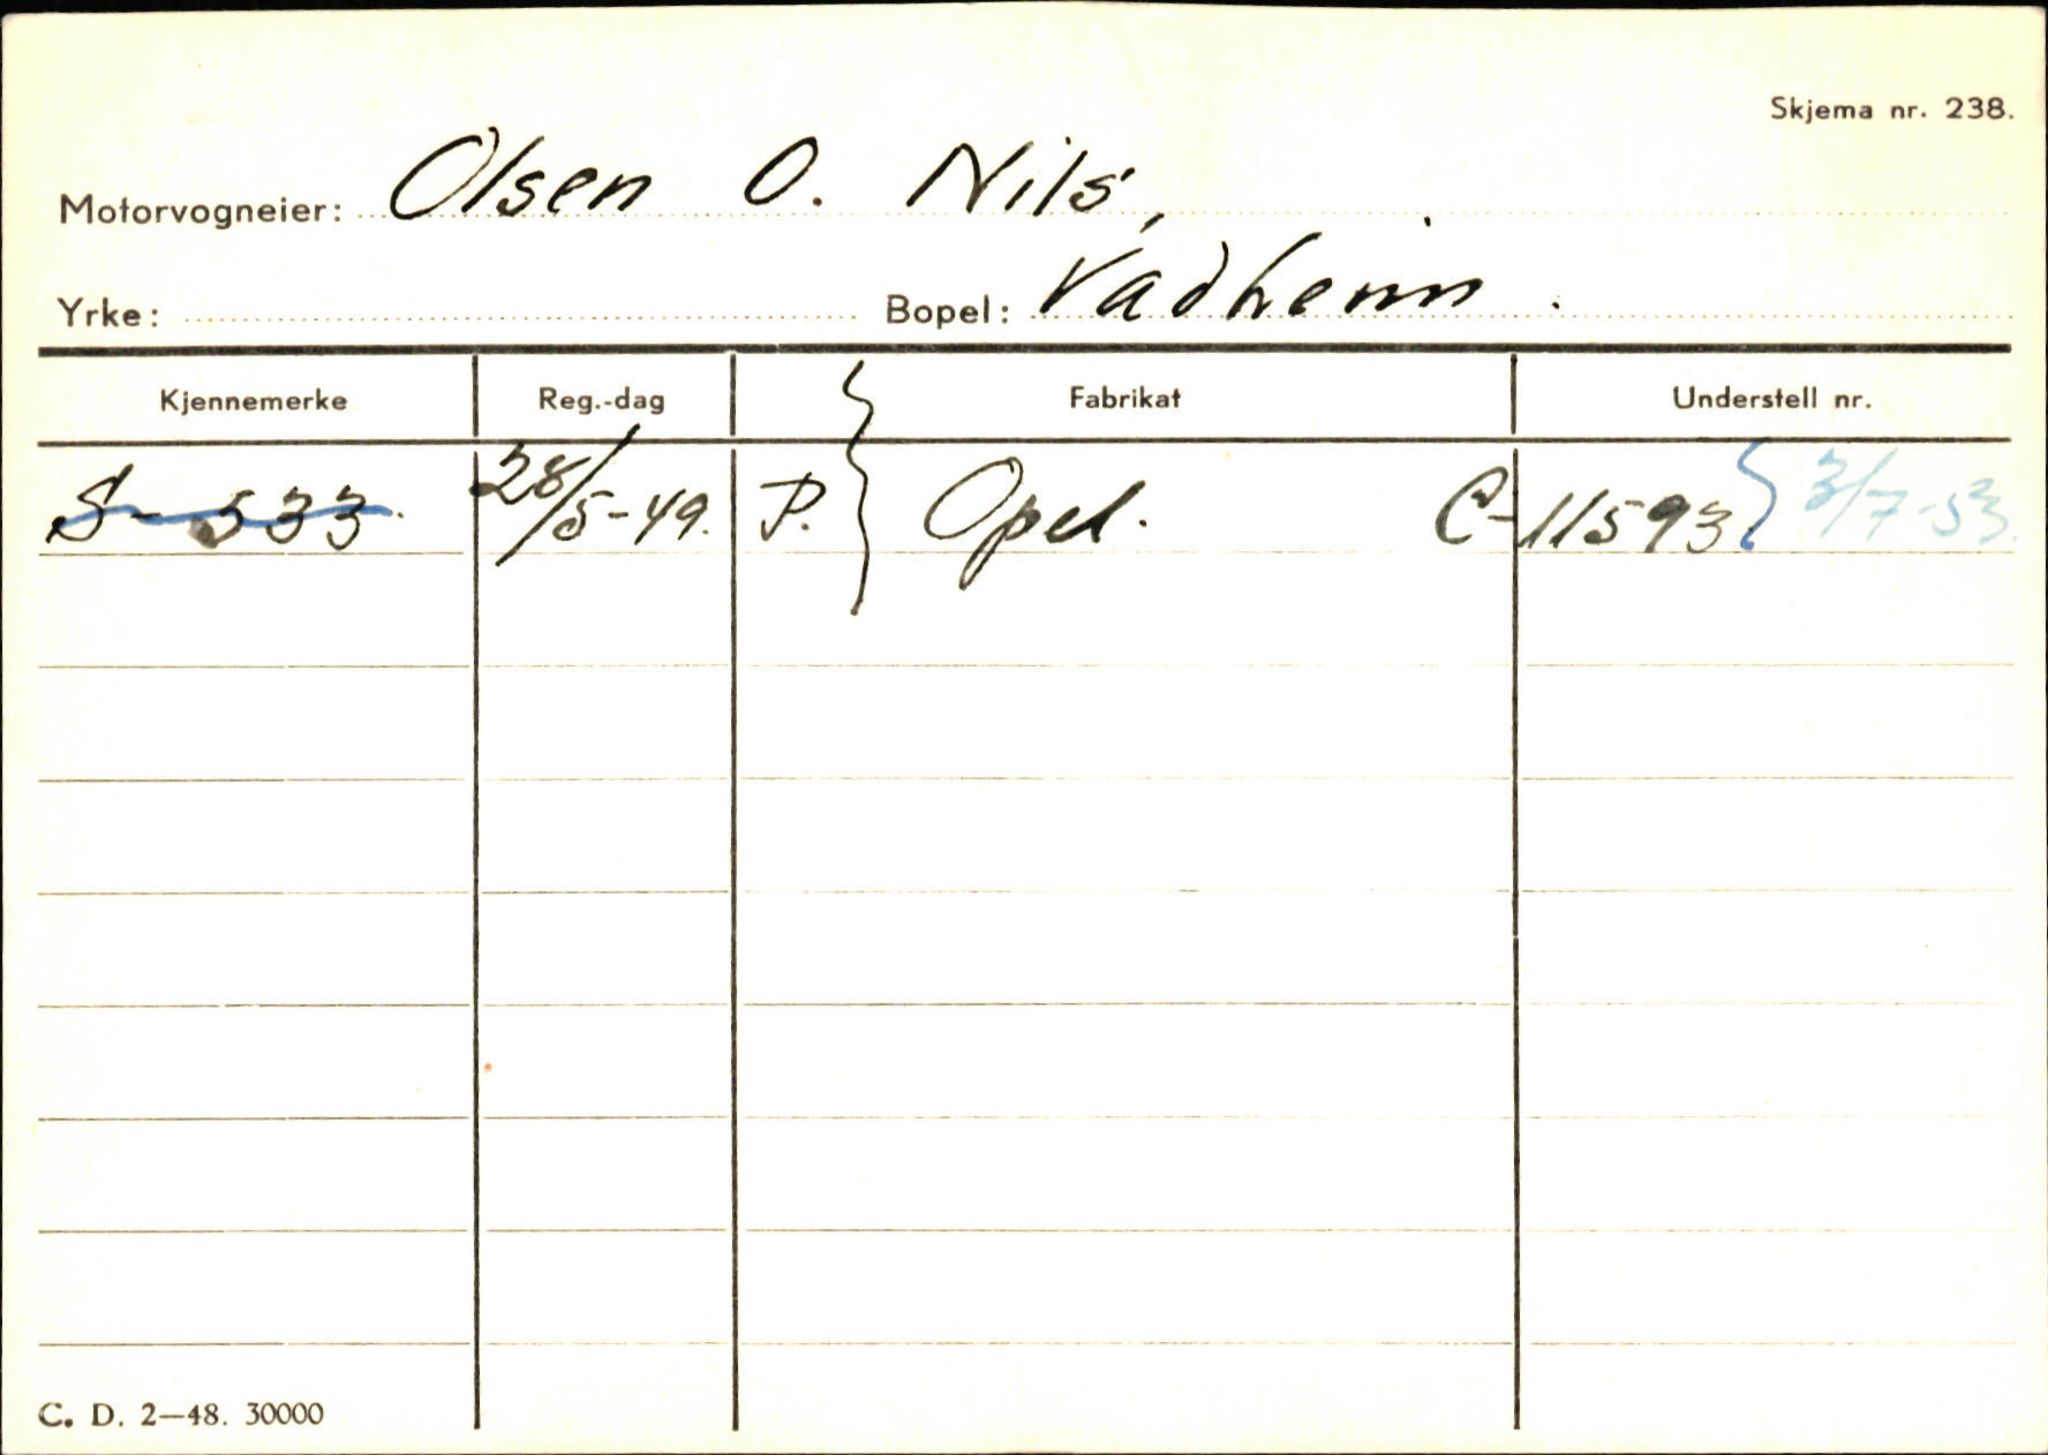 Skjema nr. 238.
Motorvogneier: Olsen O. Nils,
Yrke: Bopel: Vadheim.
Kjennemerke Reg.-dag Fabrikat Understell nr.
S-533. 28/5-49. P. } Opel. C-11593 } 3/7-53.
C. D. 2—48. 30000